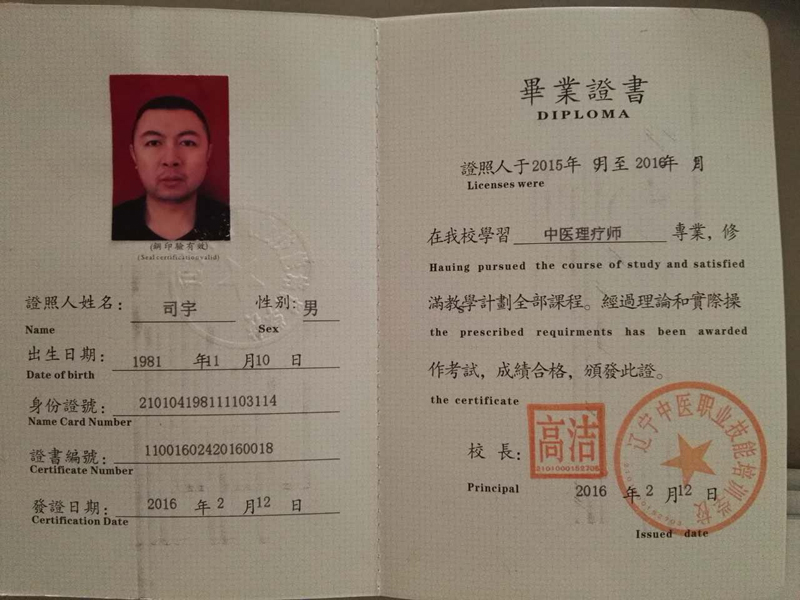 (鋼印驗有效)
(Seal certification valid)
證照人姓名: 司宇 性別: 男
Name Sex
出生日期: 1981 年11 月10 日
Date of birth
身份證號: 210104198111103114
Name Card Number
證書編號: 11001602420160018
Certificate Number
發證日期: 2016 年 2 月12 日
Certification Date
畢業證書
DIPLOMA
證照人于2015年 9月至 2016年 月
Licenses were
在我校學習 中医理疗师 專業, 修
Hauing pursued the course of study and satisfied
滿教學計劃全部課程。經過理論和實際操
the prescribed requirments has been awarded
作考試, 成績合格, 頒發此證。
the certificate
校長: 高洁
Principal
辽宁中医职业技能培训学校
2016 年 2 月12 日
Issued date